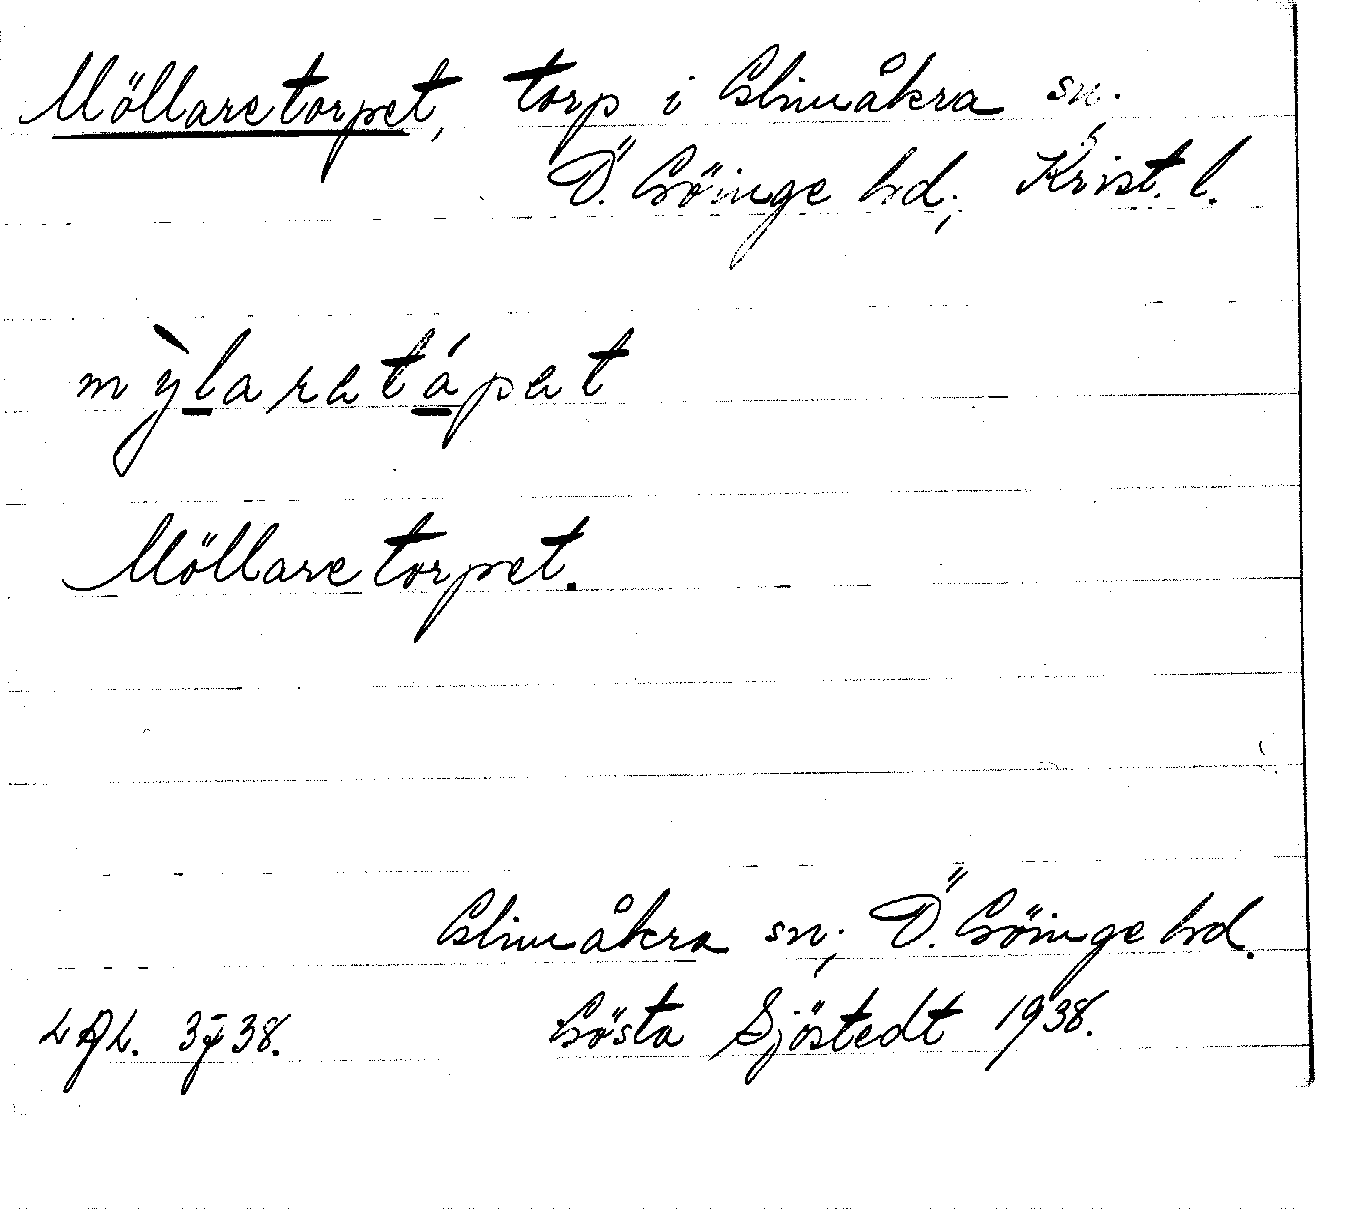 Möllaretorpet, torp i Glimåkra sn.
Ö. Göinge hd; Krist. l.
mỳlaretápet
Möllaretorpet.
Glimåkra sn; Ö. Göinge hd.
Gösta Sjöstedt 1938.